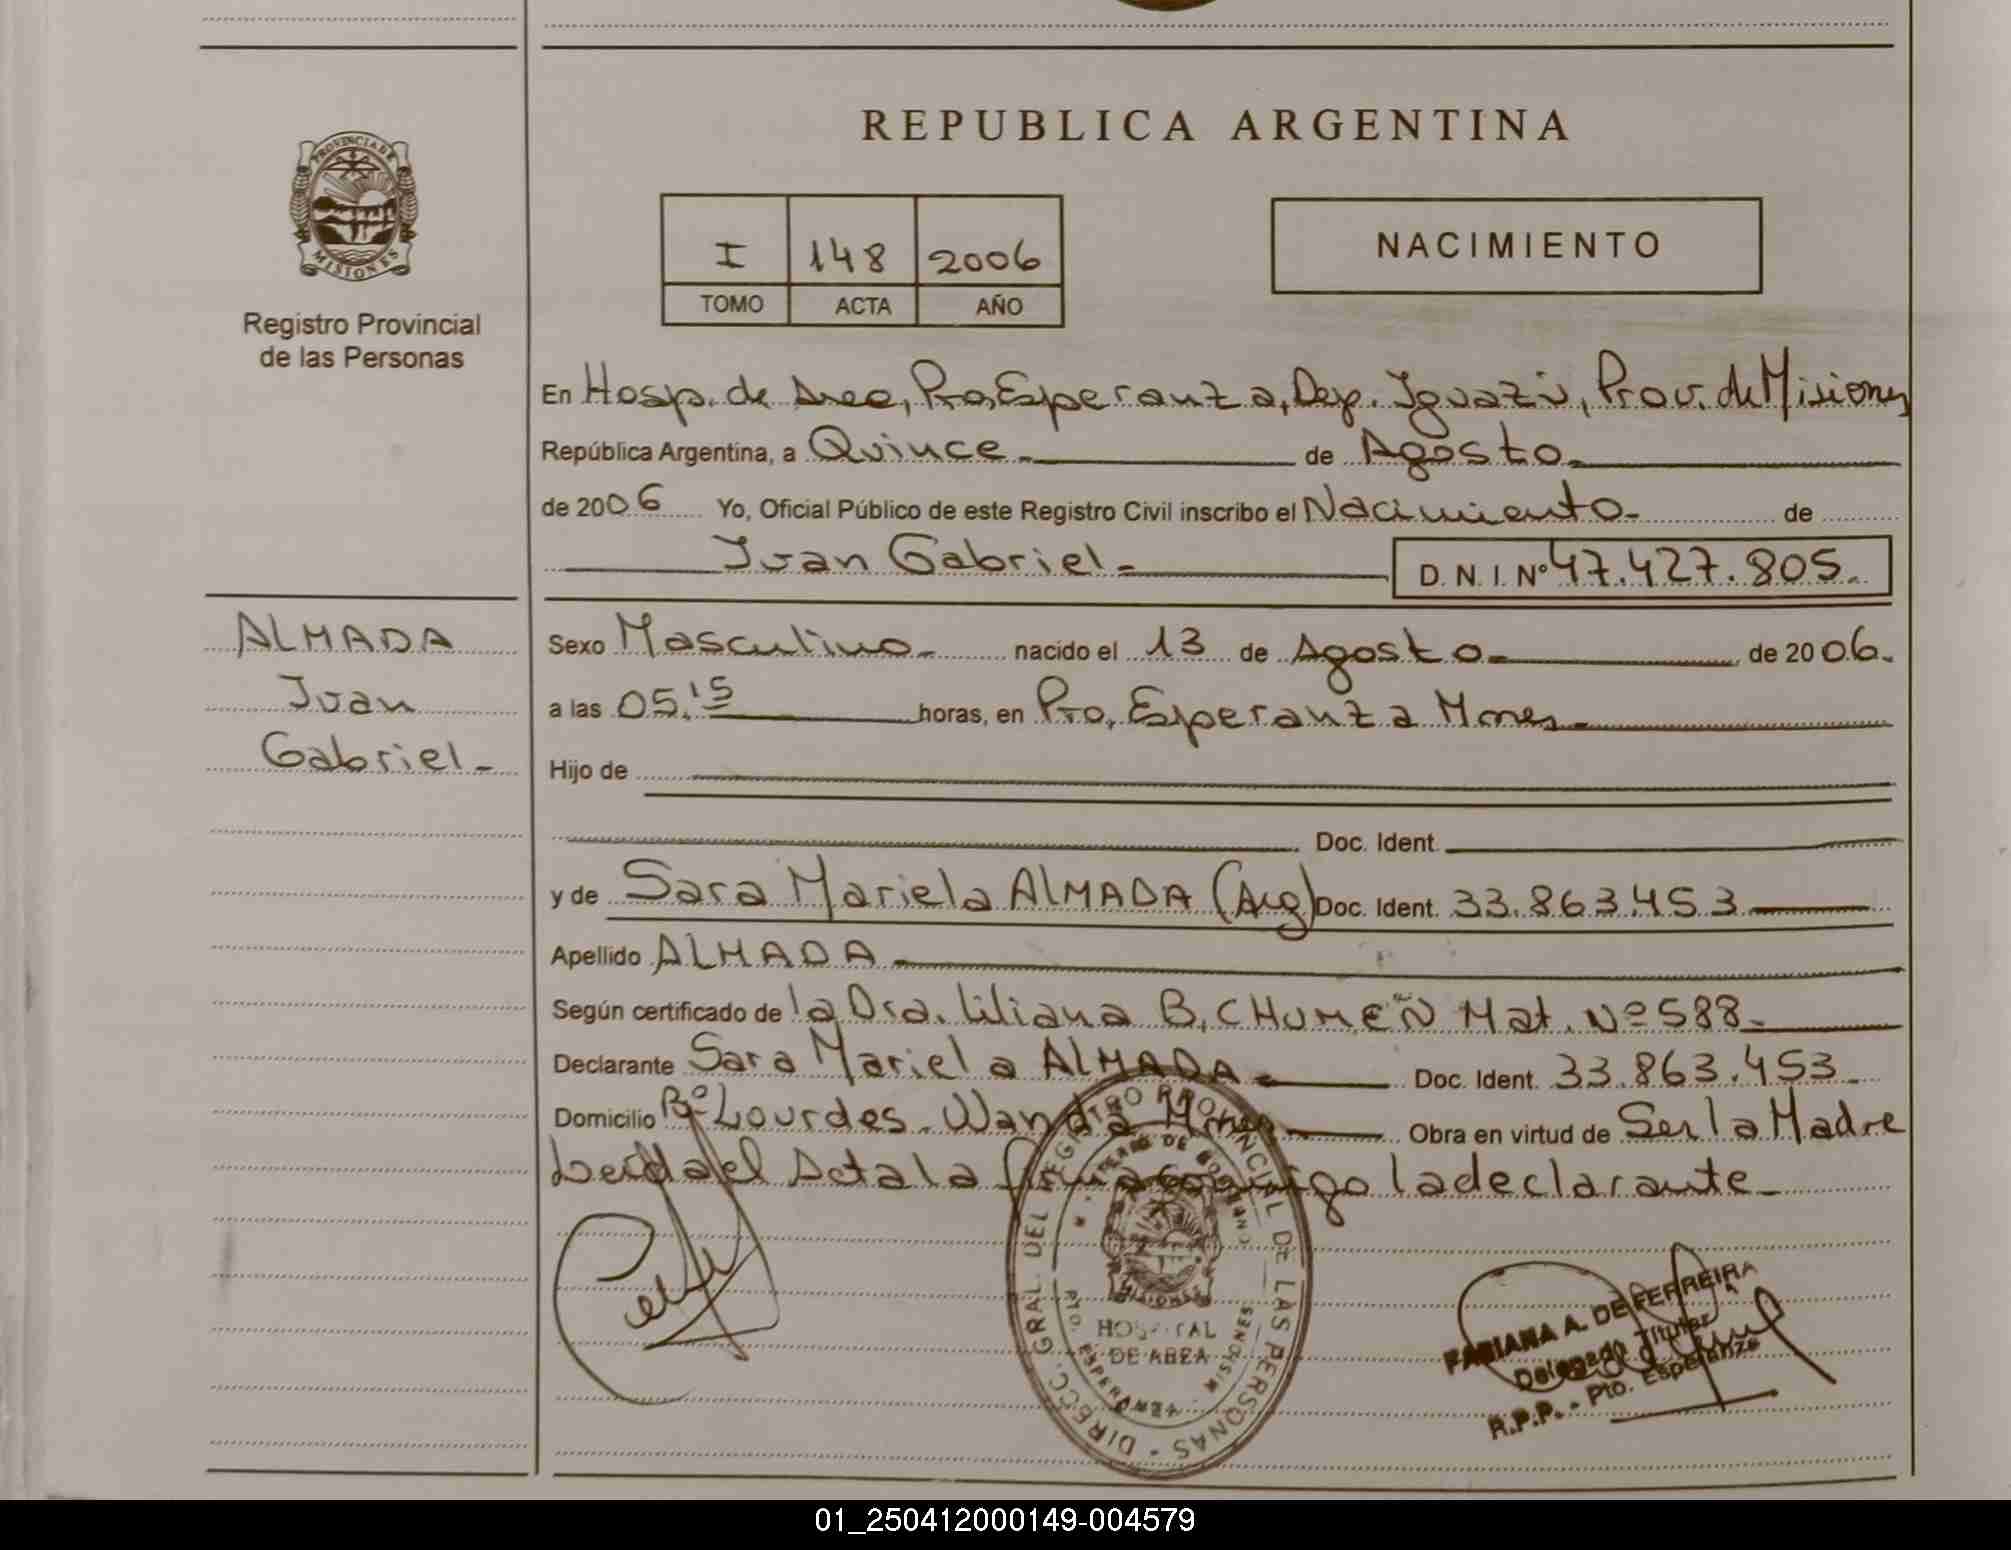 REPUBLICA ARGENTINA
PROVINCIA DE
MISIONES
Registro Provincial
de las Personas
I 148 2006
TOMO ACTA AÑO
NACIMIENTO
En Hosp. de Area, Pto, Esperanza, Dep. Iguazú, Prov. de Misiones
República Argentina, a Quince de Agosto
de 2006 Yo, Oficial Público de este Registro Civil inscribo el Nacimiento de
Juan Gabriel D. N. I. Nº 47.427.805.
ALMADA
Juan
Gabriel
Sexo Masculino nacido el 13 de Agosto de 2006.
a las 05.15 horas, en Pto, Esperanza Mnes
Hijo de
Doc. Ident.
y de Sara Mariela ALMADA (Arg) Doc. Ident. 33.863.453
Apellido ALMADA
Según certificado de la Dra. Liliana B. CHUMEÑ Mat. Nº 588
Declarante Sara Mariela ALMADA Doc. Ident. 33.863.453
Domicilio Bº Lourdes Wanda Mnes Obra en virtud de Ser la Madre
Leida el Acta la firma conmigo la declarante
DIRECC. GRAL. DEL REGISTRO PROVINCIAL DE LAS PERSONAS
MISIONES
HOSPITAL
DE AREA
PTO. ESPERANZA - MISIONES
FABIANA A. DE FERREIRA
Delegado Titular
R.P.P. - Pto. Esperanza
01_250412000149-004579